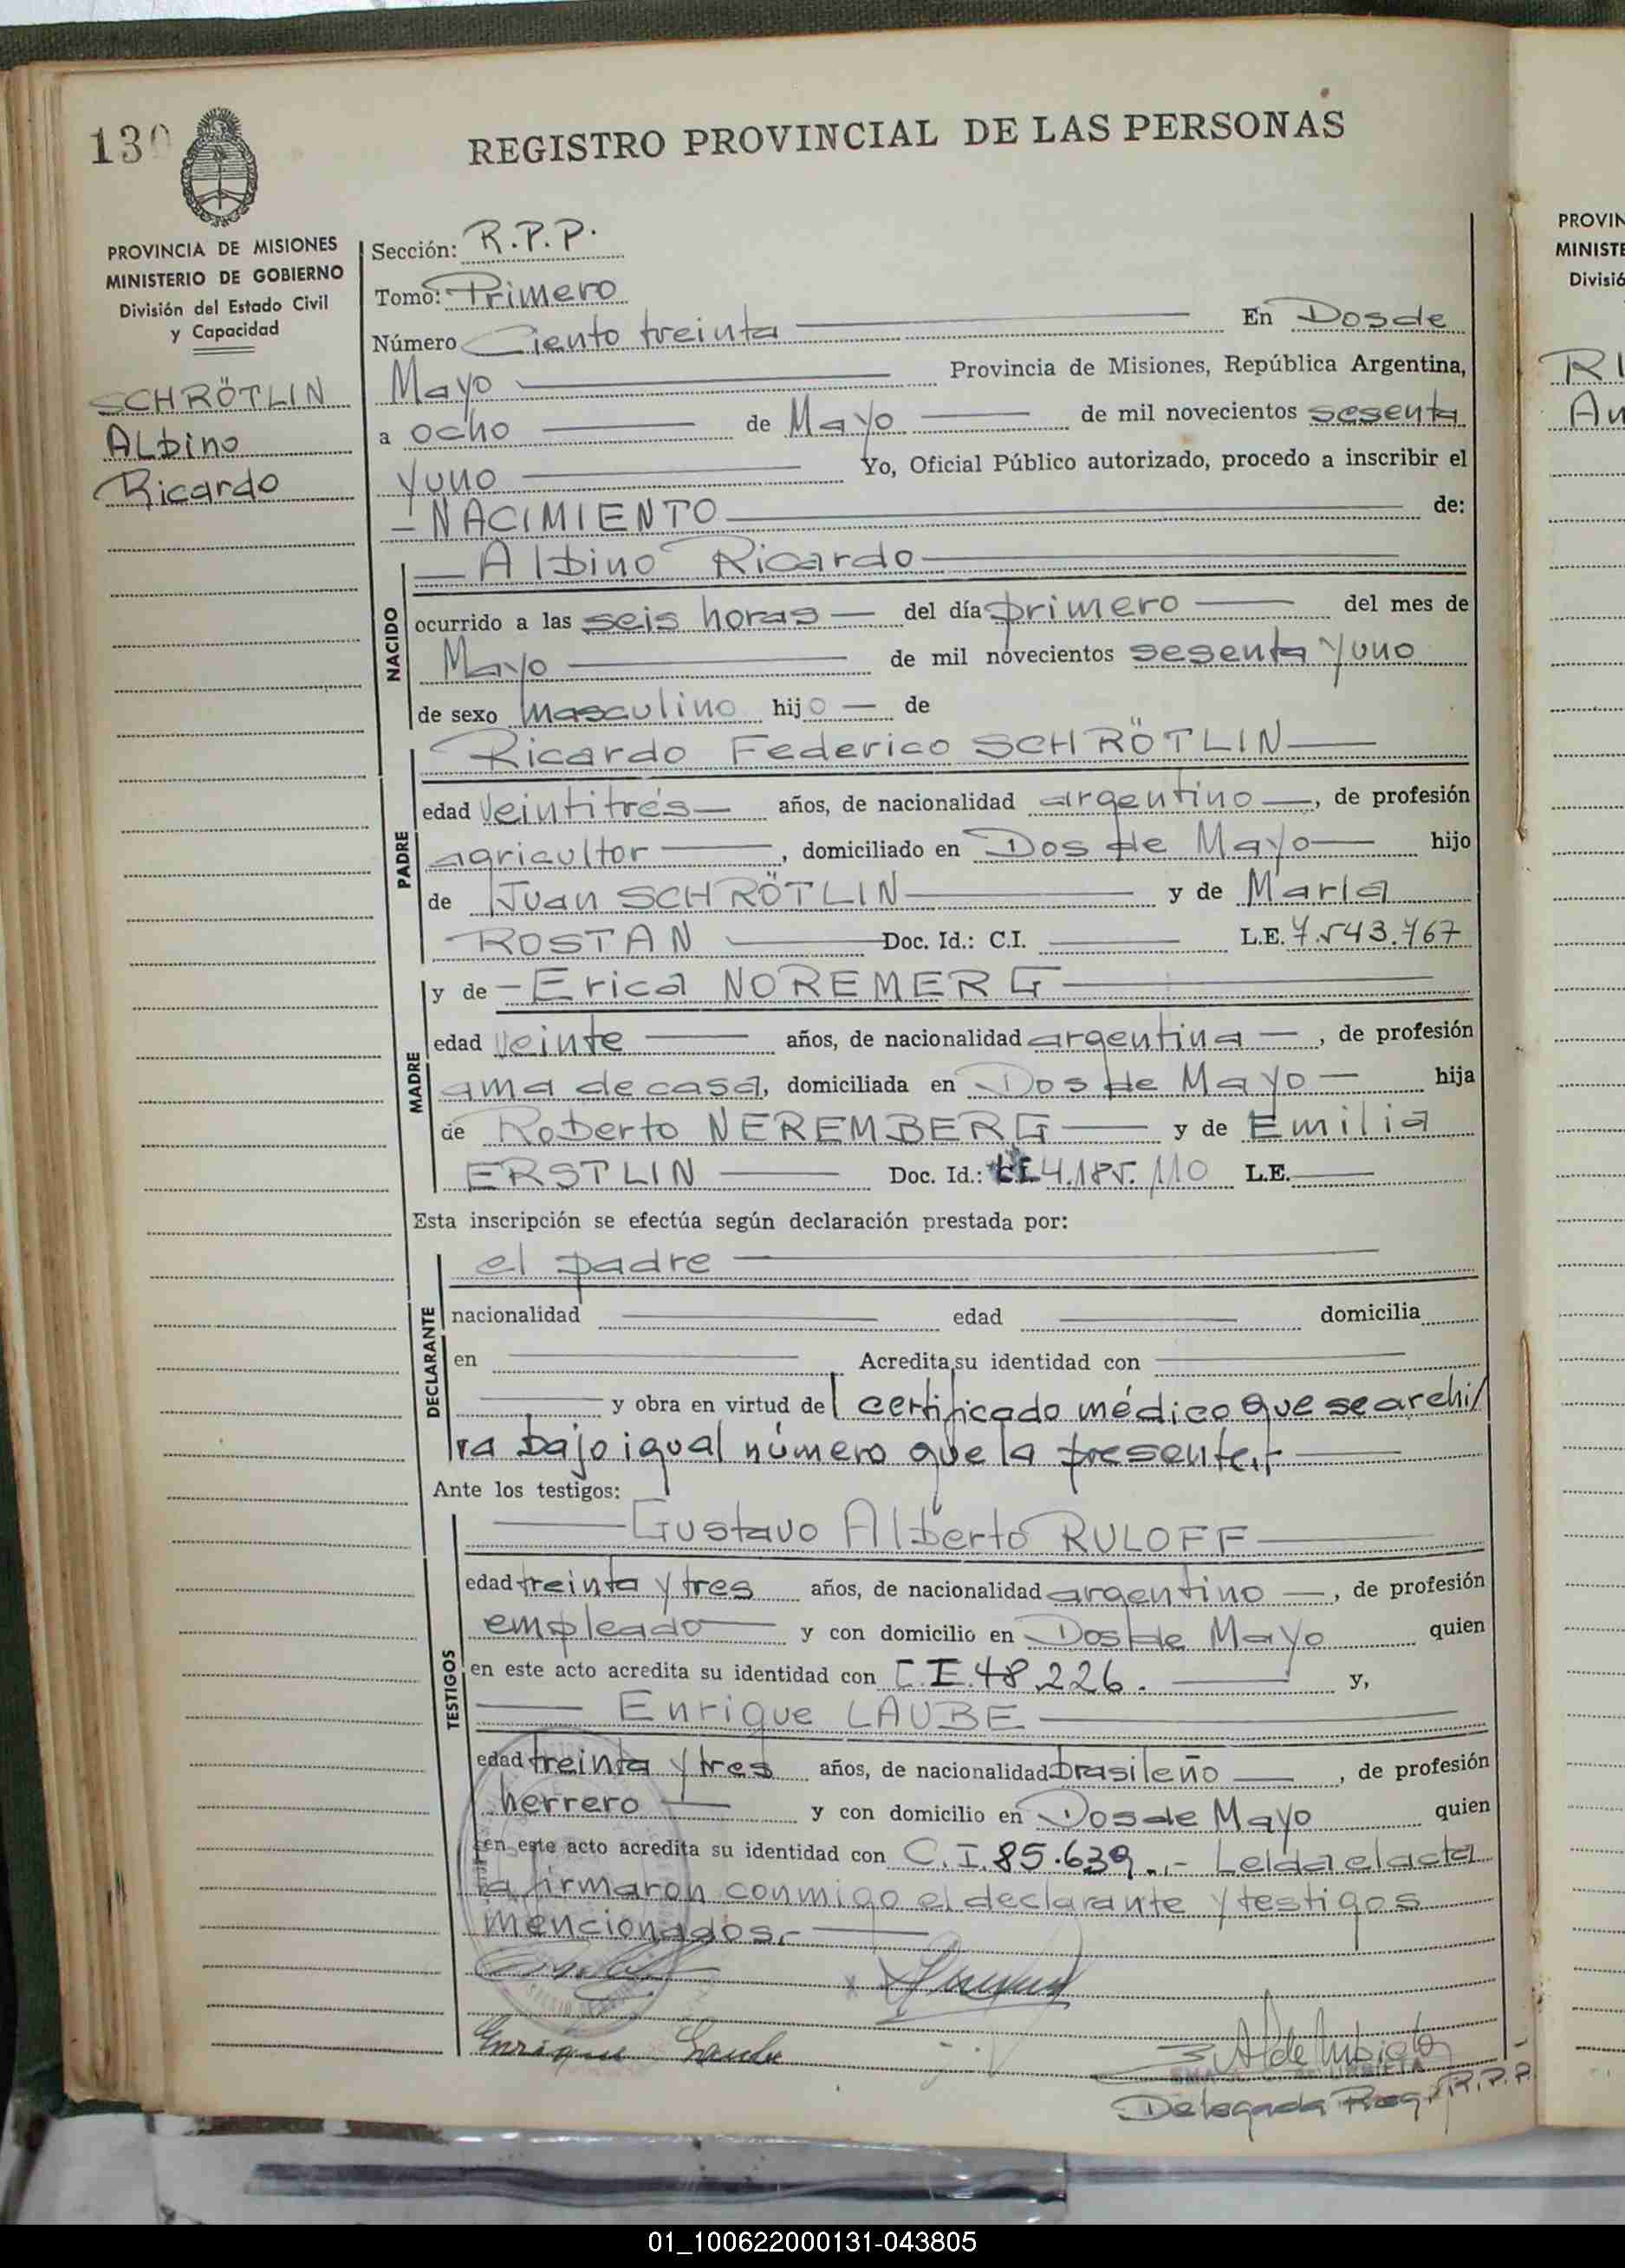 130
REGISTRO PROVINCIAL DE LAS PERSONAS
PROVINCIA DE MISIONES
MINISTERIO DE GOBIERNO
División del Estado Civil
y Capacidad
SCHRÖTLIN
Albino
Ricardo
Sección: R.P.P.
Tomo: Primero
Número Ciento treinta En Dos de
Mayo Provincia de Misiones, República Argentina,
a ocho de Mayo de mil novecientos sesenta
y uno Yo, Oficial Público autorizado, procedo a inscribir el
- NACIMIENTO de:
NACIDO
Albino Ricardo
ocurrido a las seis horas del día primero del mes de
Mayo de mil novecientos sesenta y uno
de sexo masculino hijo de
PADRE
Ricardo Federico SCHRÖTLIN
edad veintitrés años, de nacionalidad argentino, de profesión
agricultor, domiciliado en Dos de Mayo hijo
de Juan SCHRÖTLIN y de María
ROSTAN Doc. Id.: C.I. L.E. 7.543.767
MADRE
y de Erica NOREMERG
edad veinte años, de nacionalidad argentina, de profesión
ama de casa, domiciliada en Dos de Mayo hija
de Roberto NEREMBERG y de Emilia
ERSTLIN Doc. Id.: 4.185.110 L.E.
Esta inscripción se efectúa según declaración prestada por:
DECLARANTE
el padre
nacionalidad edad domicilia
en Acredita su identidad con
y obra en virtud del certificado médico que se archi/
va bajo igual número que la presente.-
Ante los testigos:
TESTIGOS
Gustavo Alberto RULOFF
edad treinta y tres años, de nacionalidad argentino, de profesión
empleado y con domicilio en Dos de Mayo quien
en este acto acredita su identidad con C.I. 48.226. y,
Enrique LAUBE
edad treinta y tres años, de nacionalidad brasileño, de profesión
herrero y con domicilio en Dos de Mayo quien
en este acto acredita su identidad con C.I. 85.639.- Leída el acta
la firmaron conmigo el declarante y testigos
mencionados.-
Enrique Laube
Delegada Reg. R.P.P.
PROVIN
MINISTE
Divisió
RI
An
01_100622000131-043805